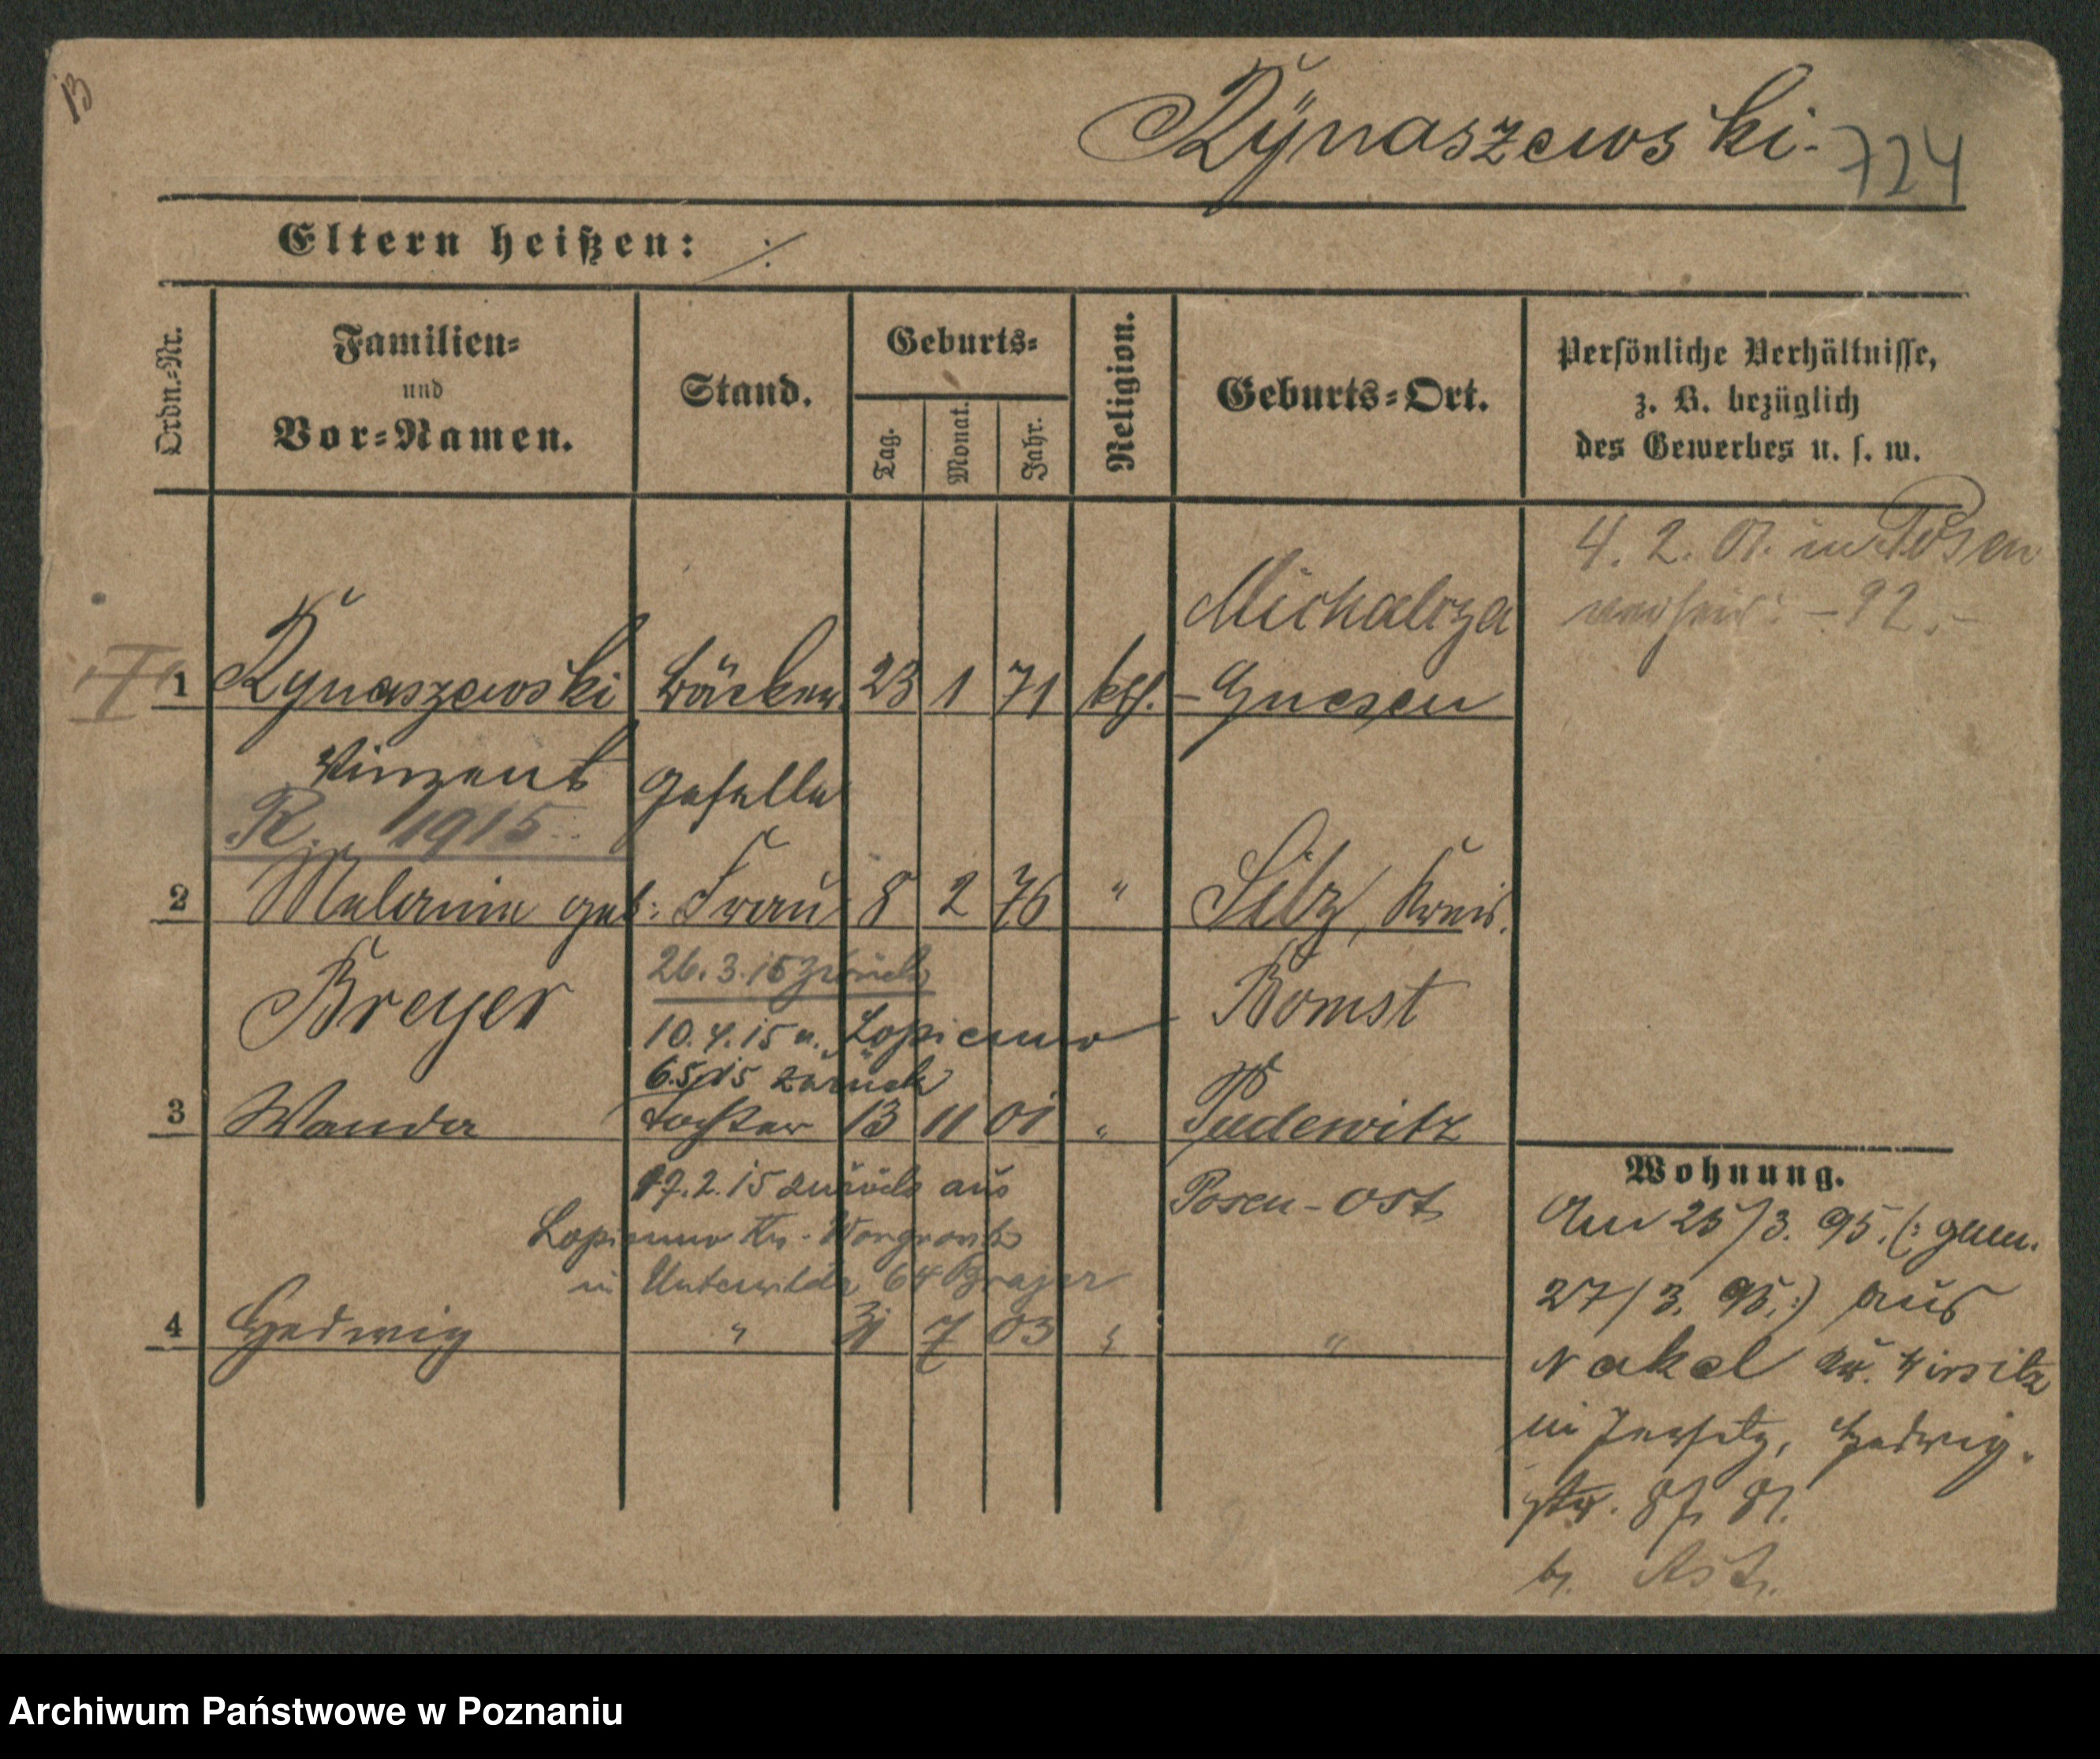 13
Rÿnaszewski. 724
Eltern heißen: ./.
Ordn.-Nr.
Familien-
und
Vor-Namen.
Stand.
Geburts-
Tag.
Monat.
Jahr.
Religion.
Geburts-Ort.
Persönliche Verhältnisse,
z. B. bezüglich
des Gewerbes u. s. w.
4. 2. 01. in Posen
– 92.–
Michalcza
1 Rynaszewski Bäcker 23 1 71 kth. – Gnesen
Vinzent Geselle
R. 1915.
2 Melanie geb: Frau 8 2 76 " Silz, Kreis.
26. 3. 15 zurück
Breyer Bomst
10. 4. 15 n. Lopienno
6.5.15 zurück
3 Wanda Tochter 13 11 01 " Pudewitz
17. 2. 15 zurück aus Posen-Ost
Lopienno Kr. Wongrowitz
in Unterwilda 64 Brajer
4 Hedwig " 31 7 03 " "
Wohnung.
Am 25/3. 95. (: gem.
27/3. 95 :) aus
Nakel Kr. Wirsitz
in Jersitz, Hedwig-
str.
b.
Archiwum Państwowe w Poznaniu